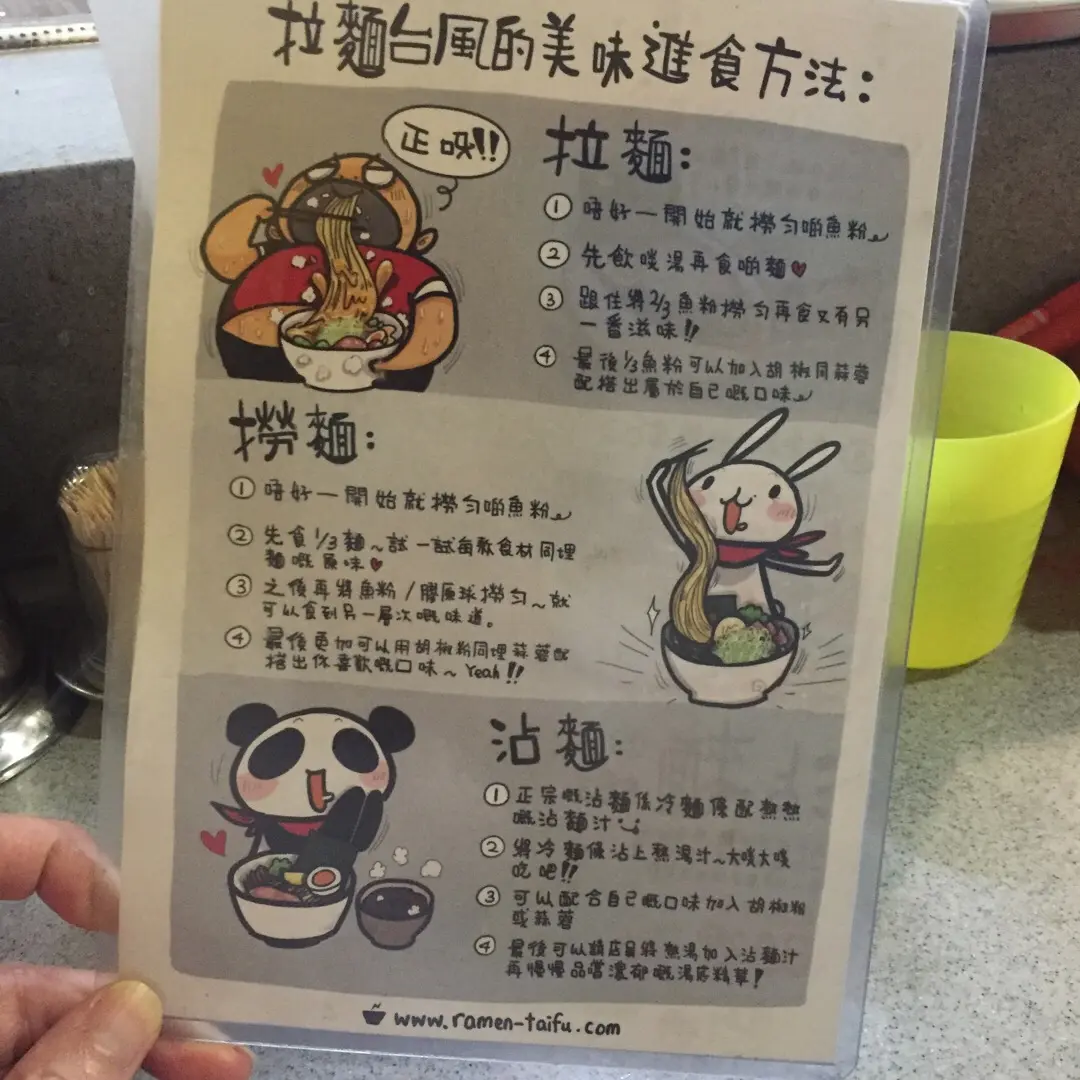 拉麵台風的美味進食方法:
正呀!!
拉麵:
① 唔好一開始就撈勻啲魚粉
② 先飲啖湯再食啲麵♥
③ 跟住將2/3魚粉撈勻再食又有另
一番滋味!!
④ 最後1/3魚粉可以加入胡椒同蒜蓉
配搭出屬於自己嘅口味
撈麵:
① 唔好一開始就撈勻啲魚粉
② 先食1/3麵~試一試每款食材同埋
麵嘅原味♥
③ 之後再將魚粉/膠原球撈勻~就
可以食到另一層次嘅味道。
④ 最後更加可以用胡椒粉同埋蒜蓉配
搭出你喜歡嘅口味~Yeah!!
沾麵:
① 正宗嘅沾麵係冷麵條配熱熱
嘅沾麵汁
② 將冷麵條沾上熱湯汁~大啖大啖
吃吧!!
③ 可以配合自己嘅口味加入胡椒粉
或蒜蓉
④ 最後可以請店員將熱湯加入沾麵汁
再慢慢品嚐濃郁嘅湯底精華!
www.ramen-taifu.com